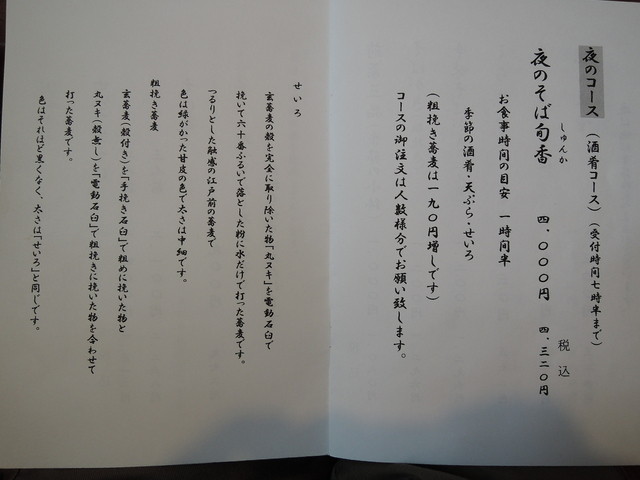 夜のコース（酒肴コース）（受付時間七時半まで）
しゅんか
夜のそば旬香 四、〇〇〇円 四、三二〇円
税込
お食事時間の目安 一時間半
季節の酒肴・天ぷら・せいろ
（粗挽き蕎麦は一九〇円増しです）
コースの御注文は人数様分でお願い致します。
せいろ
玄蕎麦の殻を完全に取り除いた物「丸ヌキ」を電動石臼で
挽いて六十番ふるいで落とした粉に水だけで打った蕎麦です。
つるりとした触感の江戸前の蕎麦で
色は緑がかった甘皮の色で太さは中細です。
粗挽き蕎麦
玄蕎麦（殻付き）を「手挽き石臼」で粗めに挽いた物と
丸ヌキ（殻無し）を「電動石臼」で粗挽きに挽いた物を合わせて
打った蕎麦です。
色はそれほど黒くなく、太さは「せいろ」と同じです。